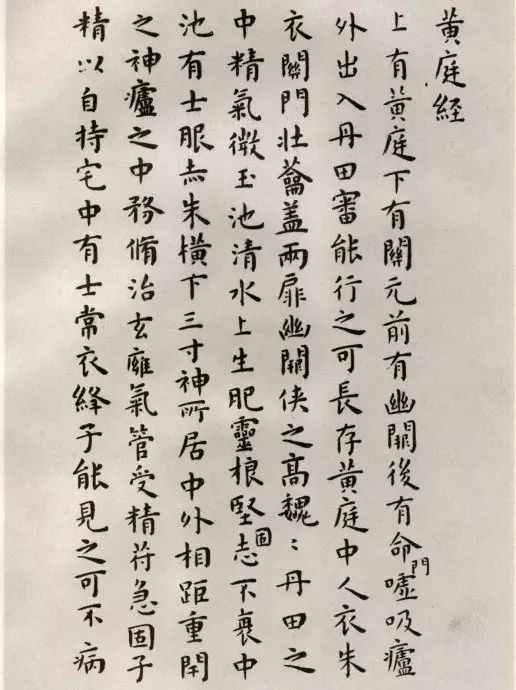 黃庭經
上有黃庭下有關元前有幽闕後有命門噓吸廬
外出入丹田審能行之可長存黃庭中人衣朱
衣關門壯蘥盖兩扉幽闕俠之髙魏〻丹田之
中精氣微玉池清水上生肥靈根堅固志不衰中
池有士服赤朱橫下三寸神所居中外相距重閇
之神廬之中務脩治玄廱氣管受精苻急固子
精以自持宅中有士常衣絳子能見之可不病